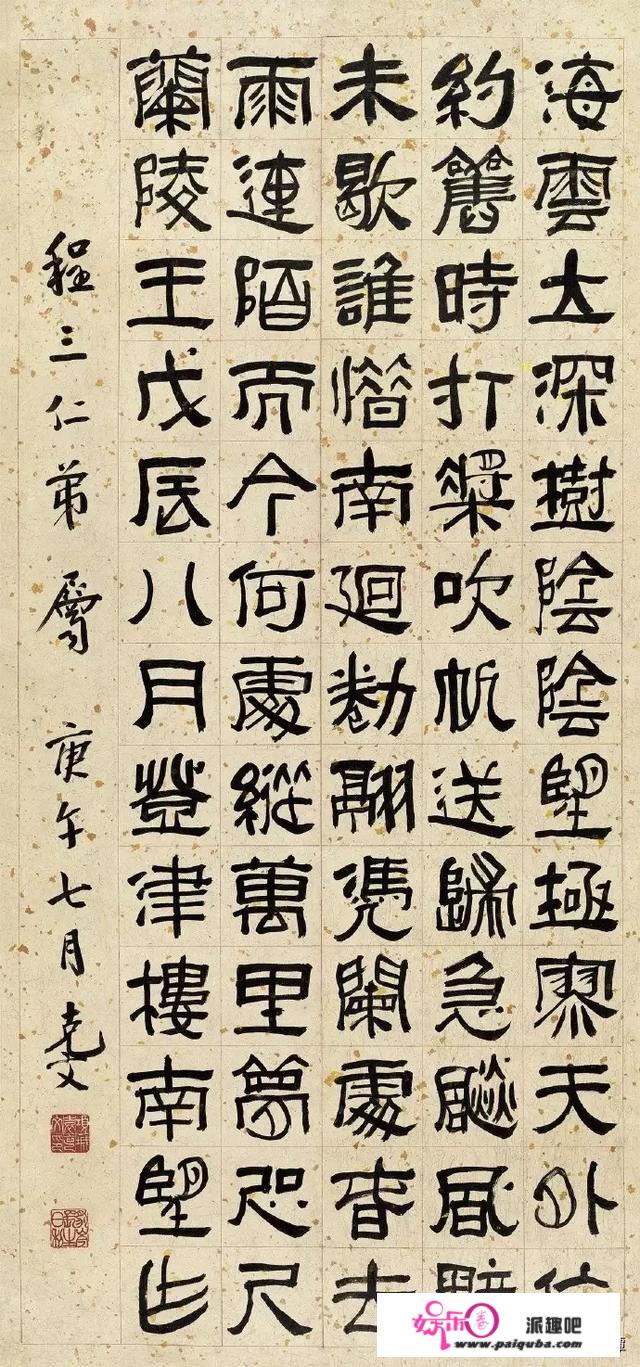 海雲大深樹陰陰望極寥天外
約舊時打槳吹帆送歸急飇風
未歇誰憯南廻勌翮凴闌處春去
雨連陌而今何處縱萬里夢咫尺
蘭陵王戊辰八月登津樓南望作
程三仁弟屬 庚午七月克文
娱乐圈 派趣吧
www.paiquba.com